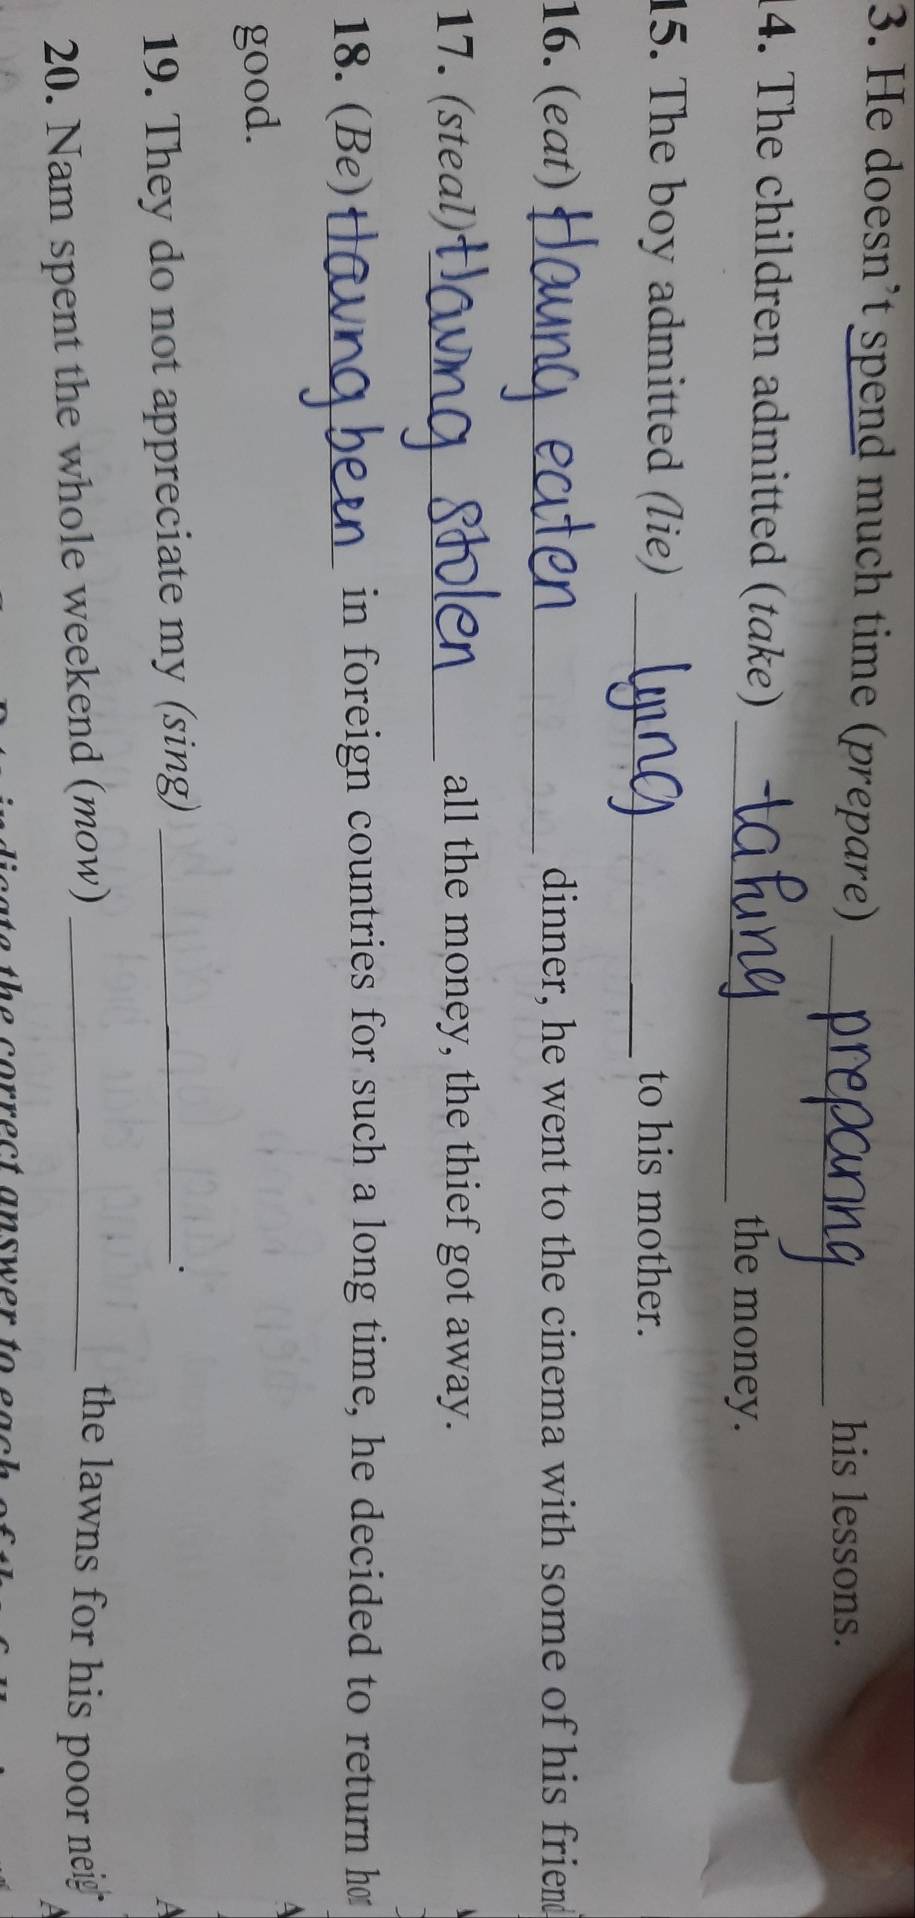 3. He doesn't spend much time (prepare) preparing his lessons.
14. The children admitted (take) taking the money.
15. The boy admitted (lie) lying to his mother.
16. (eat) Having eaten dinner, he went to the cinema with some of his friend
17. (steal) Having stolen all the money, the thief got away.
18. (Be) Having been in foreign countries for such a long time, he decided to return
good.
19. They do not appreciate my (sing) .
20. Nam spent the whole weekend (mow) the lawns for his poor
indicate the correct answer to each of the